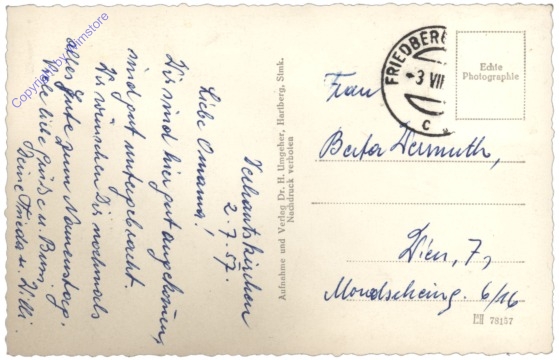 Liebe Omama!
Wir sind hier gut angekommen,
sind gut untergebracht
Wir wünschen Dir nochmals
alles Gute zum Namenstag.
Viele liebe Grüße u. Bussi
Deine Frieda u. Willi.
2.7.57.
Aufnahme und Verlag Dr. H. Umgeher, Hartberg, Stmk.
Nachdruck verboten
FRIEDBERG
-3 VII
c
Echte
Photographie
Frau
Berta Dermuth,
Wien, 7,
Mondscheing. 6/16
78157
Copyright by filmstore